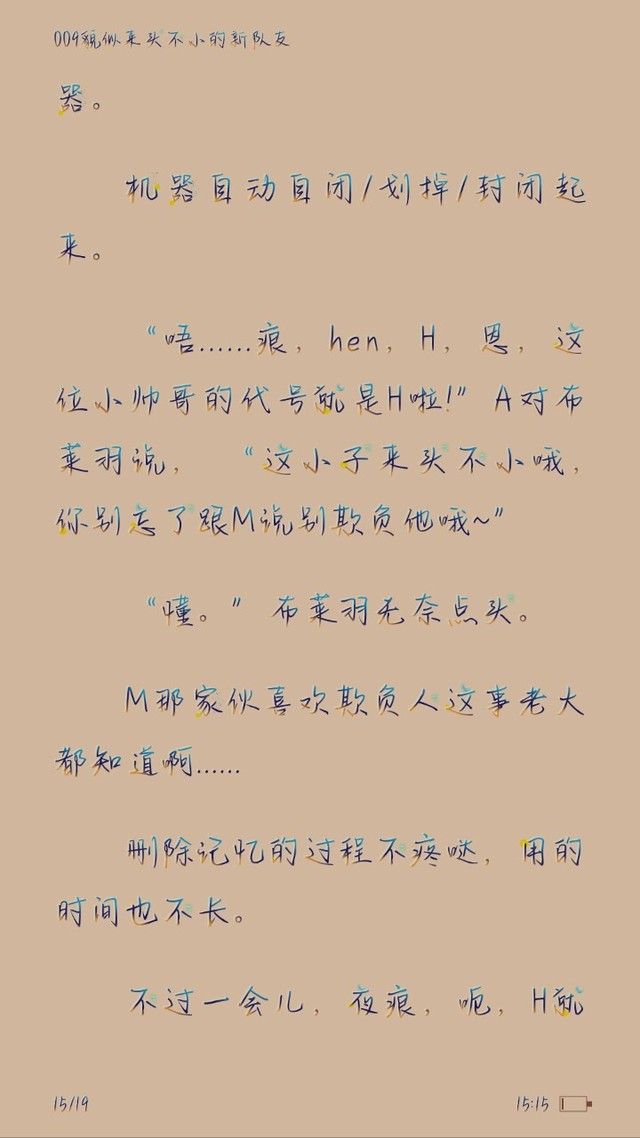 009貌似来头不小的新队友
器。
机器自动自闭/划掉/封闭起
来。
“唔......痕，hen，H，恩，这
位小帅哥的代号就是H啦!”A对布
莱羽说，“这小子来头不小哦，
你别忘了跟M说别欺负他哦~”
“懂。”布莱羽无奈点头。
M那家伙喜欢欺负人这事老大
都知道啊......
删除记忆的过程不疼哒，用的
时间也不长。
不过一会儿，夜痕，呃，H就
15/19
15:15